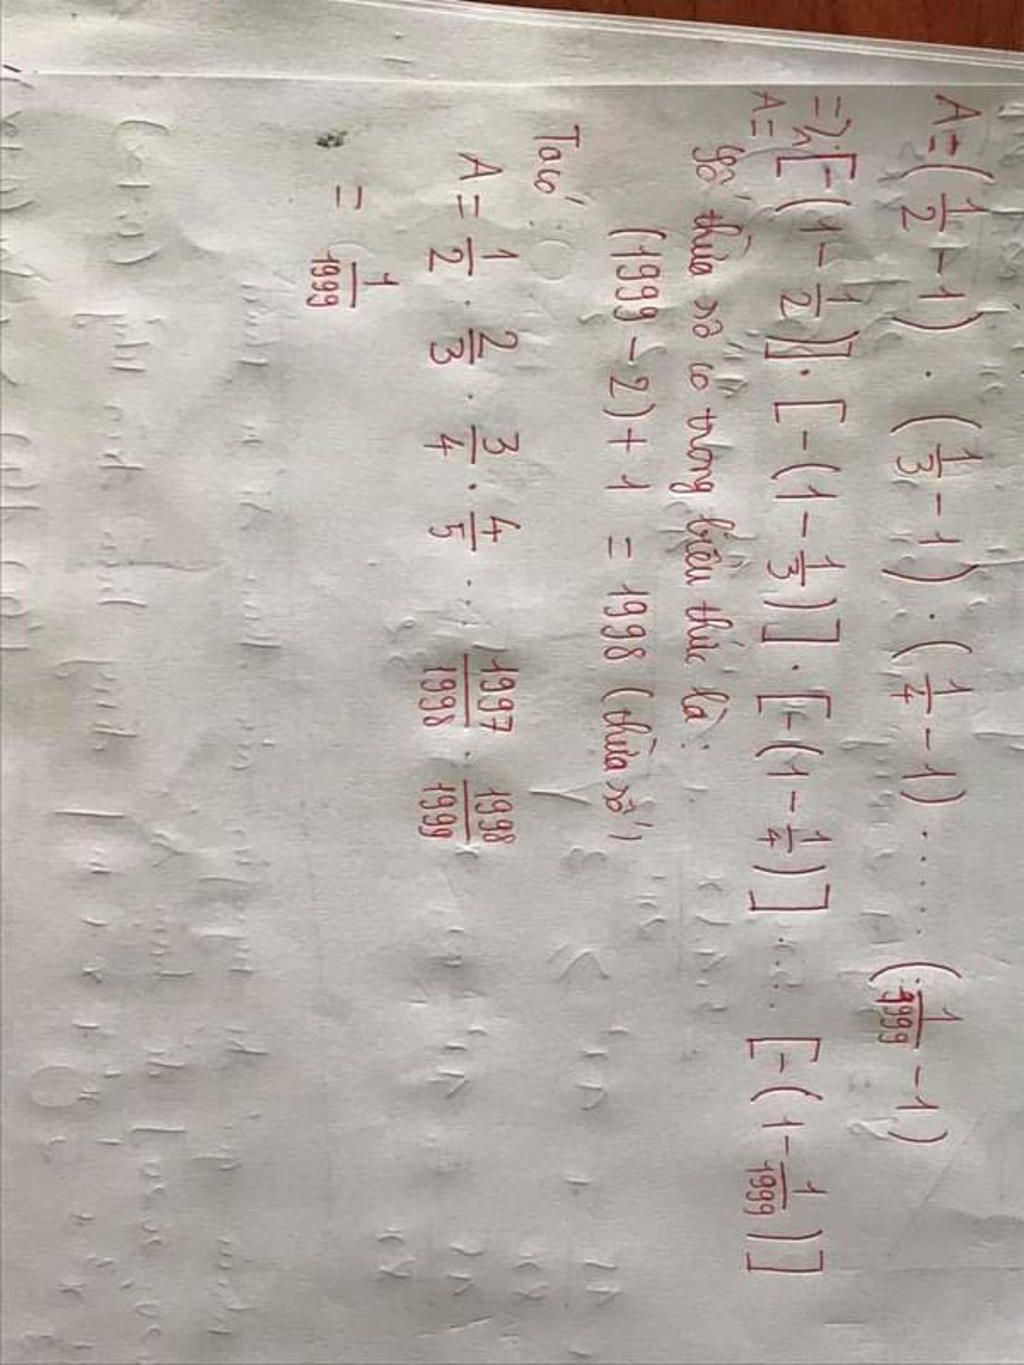 A = (1/2 - 1) . (1/3 - 1) . (1/4 - 1) ...... (1/1999 - 1)
=> A = [-(1 - 1/2)] . [-(1 - 1/3)] . [-(1 - 1/4)] ..... [-(1 - 1/1999)]
Số thừa số có trong biểu thức là:
(1999 - 2) + 1 = 1998 (thừa số)
Ta có:
A = 1/2 . 2/3 . 3/4 . 4/5 ... 1997/1998 . 1998/1999
= 1/1999